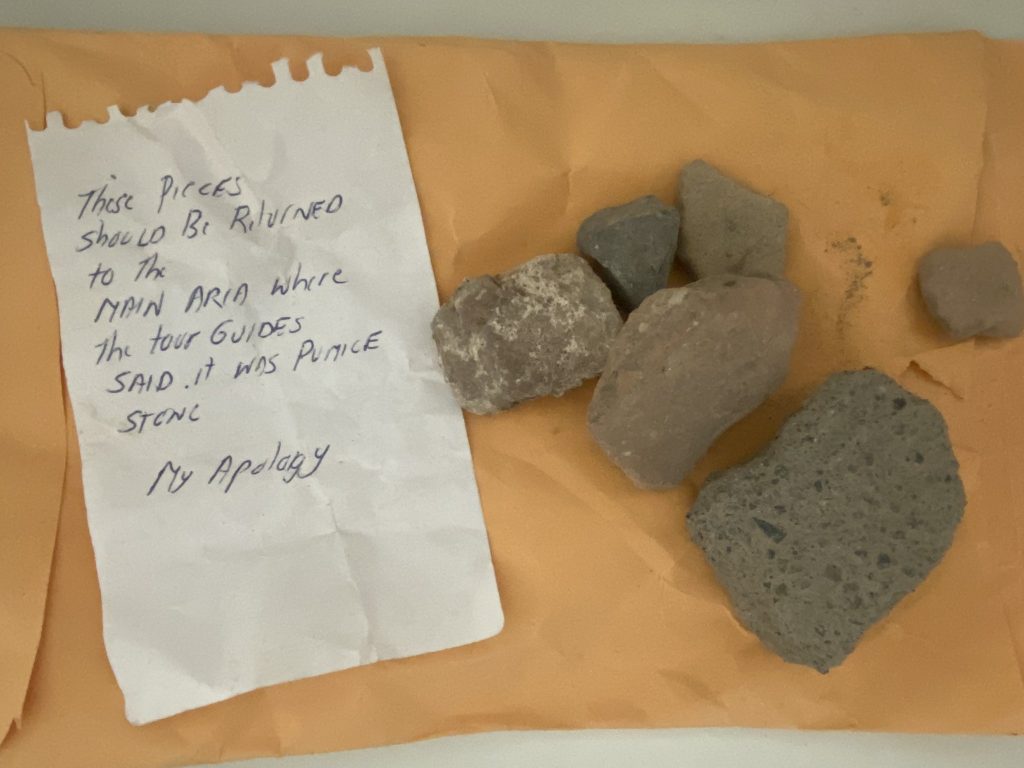 These PIECES
should Be RETURNED
to The
MAIN ARIA where
The tour GUIDES
SAID .it was PUMICE
STONE
My Apology